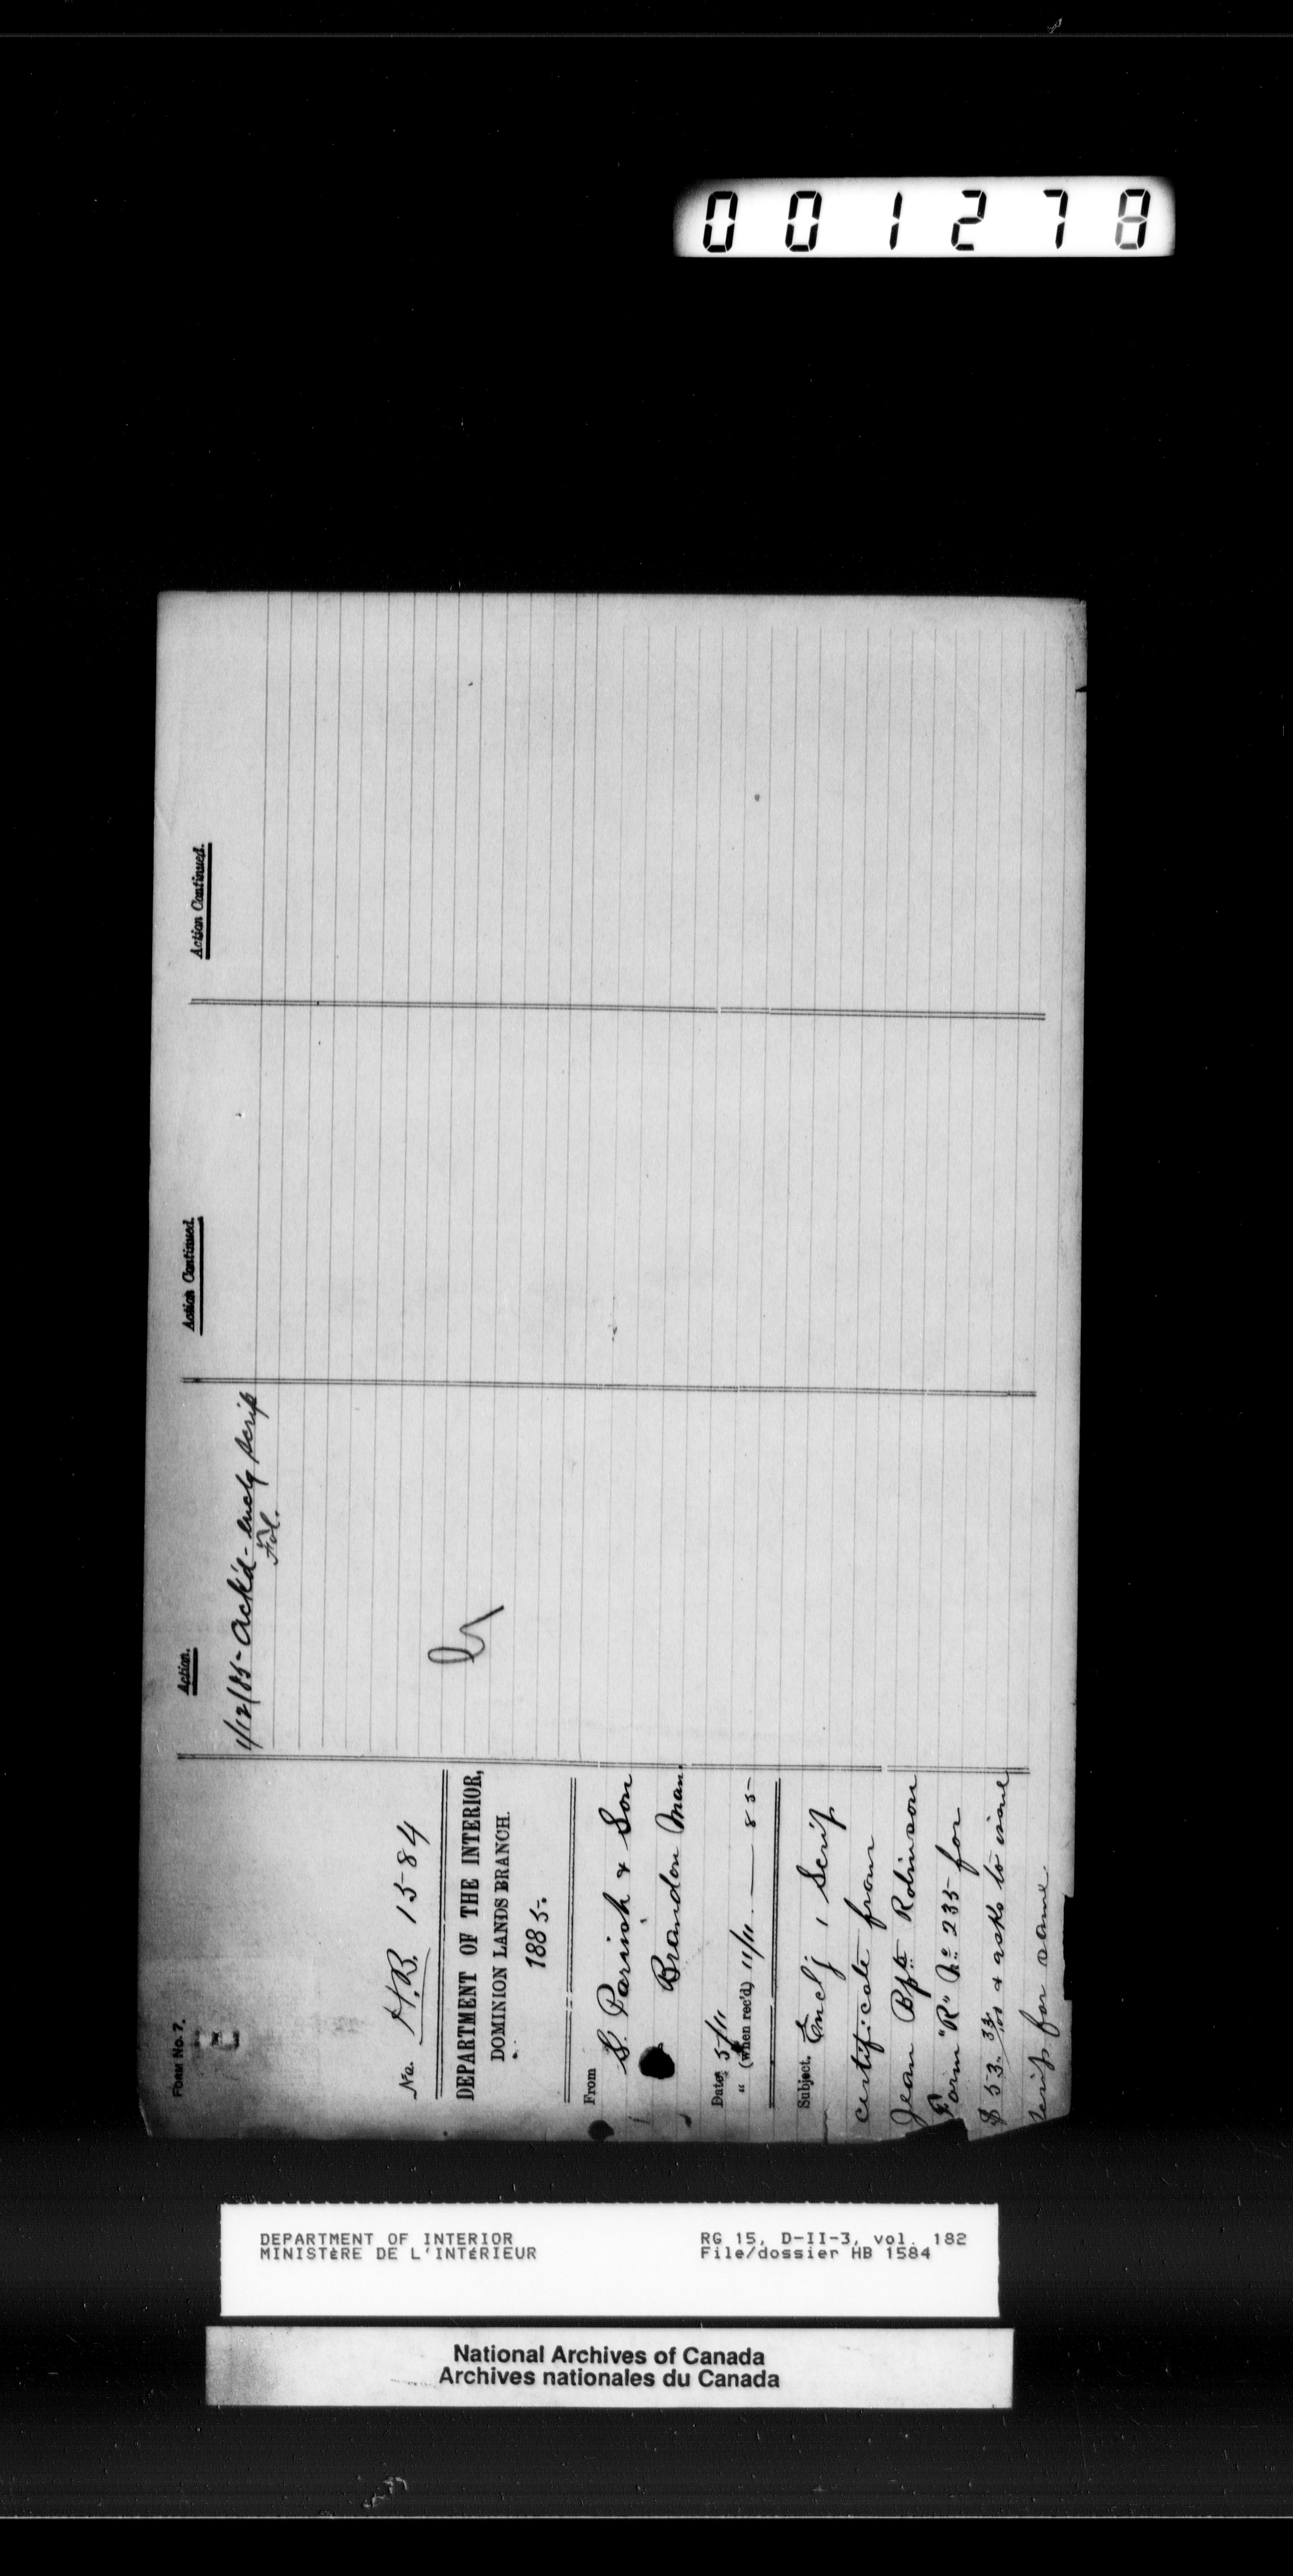 001278
FORM No. 7.
No. H.B. 1584
DEPARTMENT OF THE INTERIOR,
DOMINION LANDS BRANCH.
1885.
From
S. Parrish & Son
Brandon Man.
Date 5/11
" (when rec'd) 11/11 — 85
Subject. Enclg 1 Scrip
certificate from
Jean Bpte Robinson
Form "R" No 235 for
$53. 33/100 & asks to issue
scrip for same.
Action.
1/12/85 - Ack'd - encly scrip
Action Continued.
Action Continued.
DEPARTMENT OF INTERIOR
MINISTÈRE DE L'INTÉRIEUR
RG 15, D-II-3, vol. 182
File/dossier HB 1584
National Archives of Canada
Archives nationales du Canada